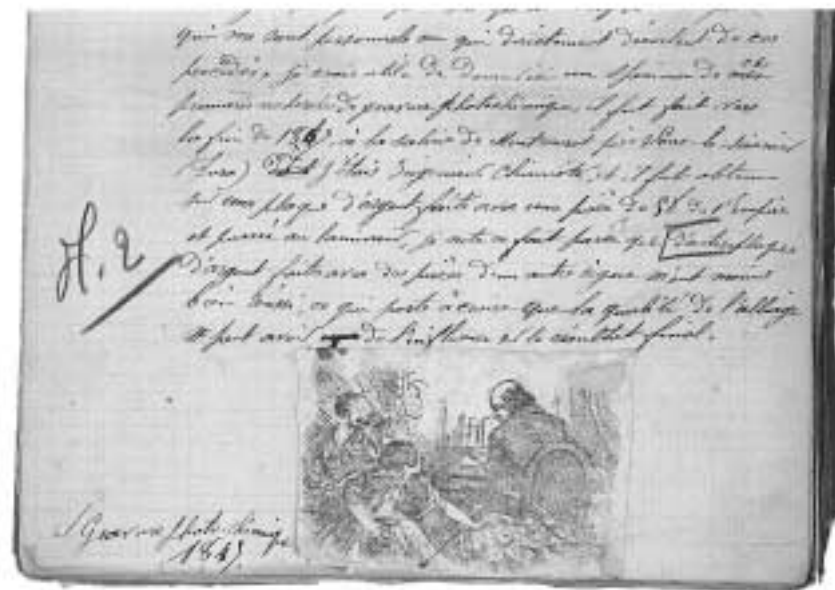 qui me sont personnels ou qui directement découlent de ces
procédés, je crois utile de donner ici un spécimen de
premiers de gravure photochimique, il fut fait vers
la fin de 184, à la saline de Montmorot près Lons-le-Saunier
(Jura) j'étais Ingénieur Chimiste, et il fut obtenu
sur une plaque d'argent faite avec une pièce de 5f de l'Empire
et passée au laminoir, je note ce fait parce que d'autres plaques
d'argent faites avec des pièces d'un autre m'ont moins
bien réussi, ce qui porte à croire que la qualité de l'alliage
peut avoir de l'influence sur le résultat final.
H. 2
Gravure photochimique